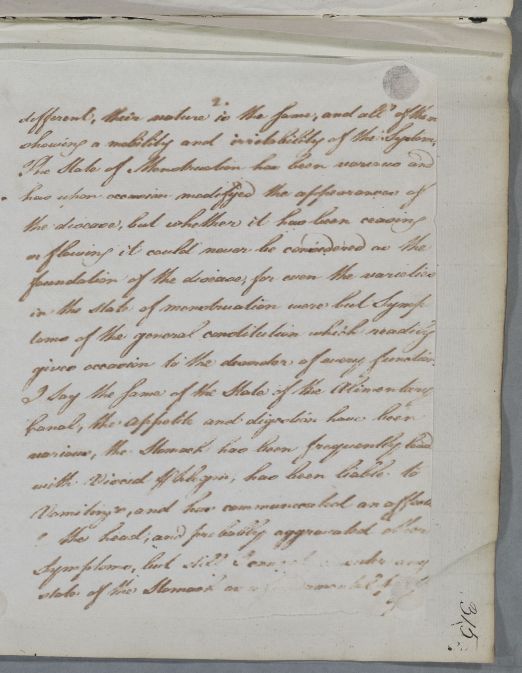 2.
different, their nature is the same, and all of them
shewing a mobility and irritability of the System.
The State of Menstruation has been various and
has upon occasion modifyed the appearances of
the disease, but whether it has been ceasing
or flowing it could never be considered as the
foundation of the disease; for even the varieties
in the state of menstruation were but Symp
toms of the general constitution which readily
gives occasion to the disorder of every function
I say the same of the State of the Alimentary
Canal, the appetite and digestion have been
various, the Stomach has been frequently load
with Viscid Phlegm, has been liable to
Vomitings, and has communicated an affect
the head; and probably aggravated other
Symptoms, but still I any
state of the Stomach as
315